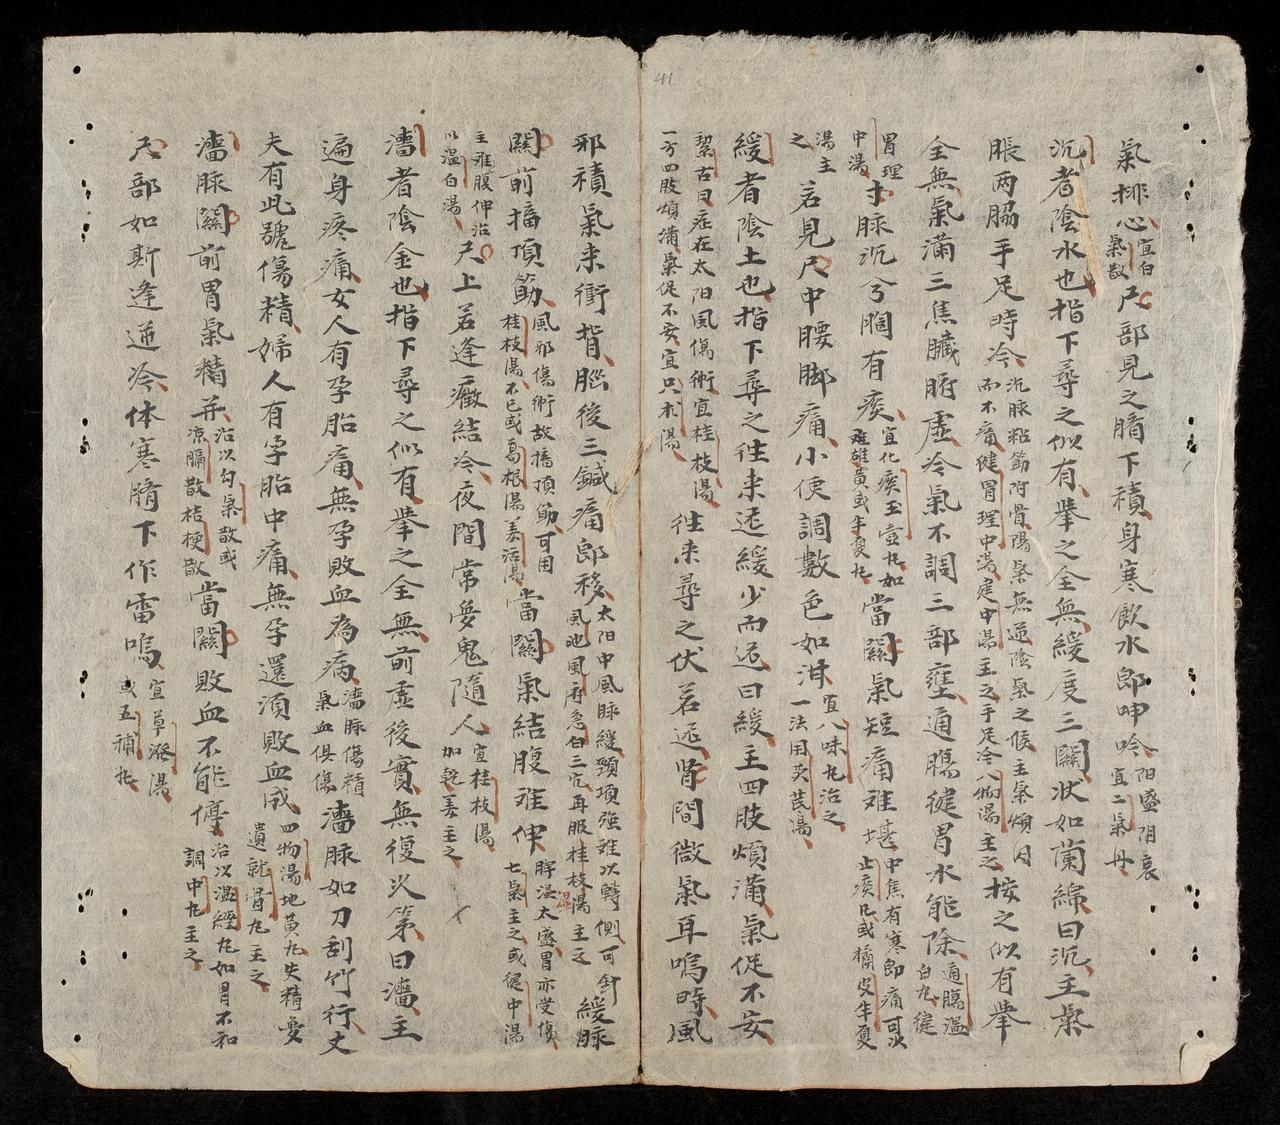 41
氣排心宜白氣散尺部見之臍下積身寒飲水郎呻吟陽盛陰衰宜二氣丹
沉者陰水也指下尋之似有舉之全無緩度三關狀如蘭綿曰沉主氣
脹两脇手足時冷沉脉粘筋附骨陽氣無逆陰氣之候主氣煩悶而不痛健胃理中湯建中湯主之手足冷八物湯主之按之似有舉
全無氣滿三焦臟腑虛冷氣不調三部壅通腸健胃水能除通腸溫白丸健
胃理中湯寸脉沉兮胸有痰宜化痰玉壺丸如雄黃或半夏丸當關氣短痛难堪中焦有寒即痛可次止痰丸或橘皮半夏
湯主之若見尺中腰脚痛小便調數色如泔宜八味丸治之一法用茯苓湯
緩者陰土也指下尋之徃来遅緩少而遅曰緩主四肢煩滿氣促不安
絜古曰症在太阳風傷衛宜桂枝湯一方四肢煩滿氣促不安宜只术湯徃来尋之状若遅腎間微氣耳鳴時風
邪積氣来衝背腦後三鍼痛郎移太阳中風脉緩頸項强难以轉側可針風池風府急白三宂再服桂枝湯主之緩脉
關前搐頂筋風邪傷衛故搐頂筋可用桂枝湯不已或葛根湯羌活湯當關氣結腹难伸脾湿太盛胃亦受傷七氣主之或健中湯
主难腹伸治以溫白湯尺上若逢癥結冷夜間常夢鬼隨人宜桂枝湯加乾姜主之
濇者陰金也指下尋之似有舉之全無前虛後實無復次第曰濇主
遍身疼痛女人有孕胎痛無孕敗血為病濇脉傷精氣血俱傷濇脉如刀刮竹行丈
夫有此號傷精婦人有孕胎中痛無孕還須敗血成四物湯地黃丸失精憂遺就骨丸主之
濇脉關前胃氣精并治以勻氣散或凉膈散桔梗散當關敗血不能停治以溫經丸如胃不和調中丸主之
尺部如斯逢逆冷体寒臍下作雷鳴宜草發湯或五補丸